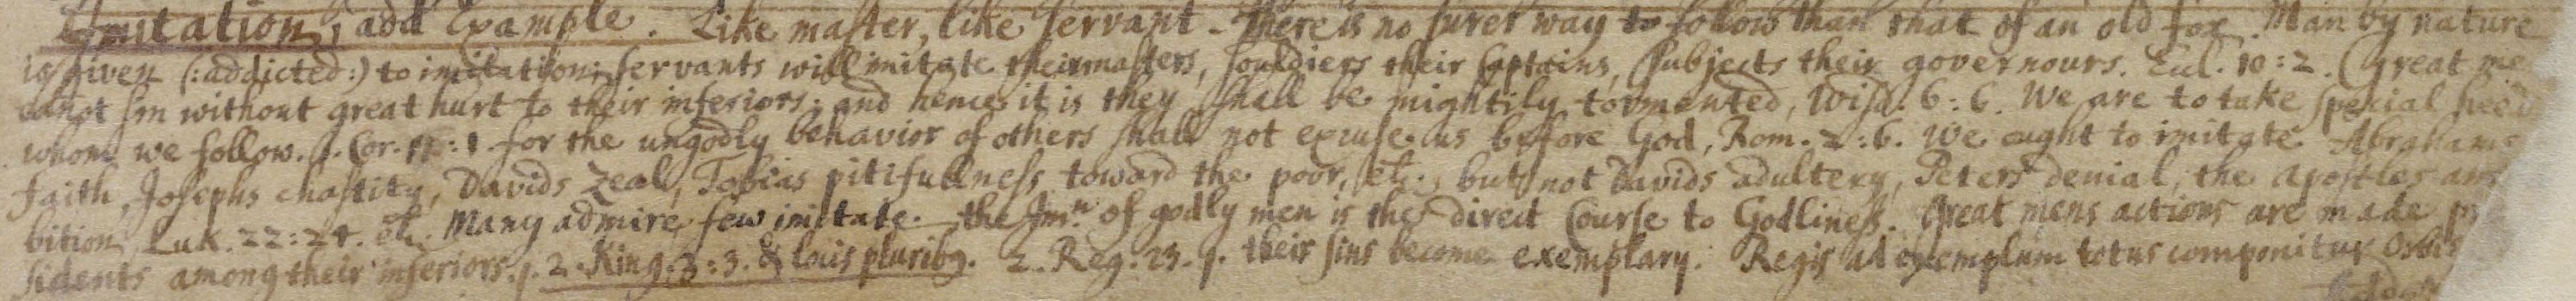 Imitation, add Example. Like master, like servant - There is no surer way to follow than that of an old fox. Man by nature
is given (:addicted:) to imitation; servants will imitate their masters, souldiers their Captains, Subjects their governours. Eccl. 10:2. Great me
canot sin without great hurt to their inferiors; and hence it is they shall be mightily tormented, Wisd. 6:6. We are to take special heed
whom we follow. 1. Cor. 11:1 for the ungodly behavior of others shall not excuse us before God, Rom. 2:6. We ought to imitate Abrahams
faith, Josephs chastity, Davids zeal, Tobias pitifullness toward the poor, etc. but not Davids adultery, Peters denial, the Apostles am
bition Luk. 22:24. etc. Many admire, few imitate. the Imn of godly men is the direct Course to Godliness. Great mens actions are made pr
sidents among their inferiors. 2. King. 3:3. & locis pluribq. 2. Reg. 23. their sins become exemplary. Regis ad exemplum totus componitur Orbis